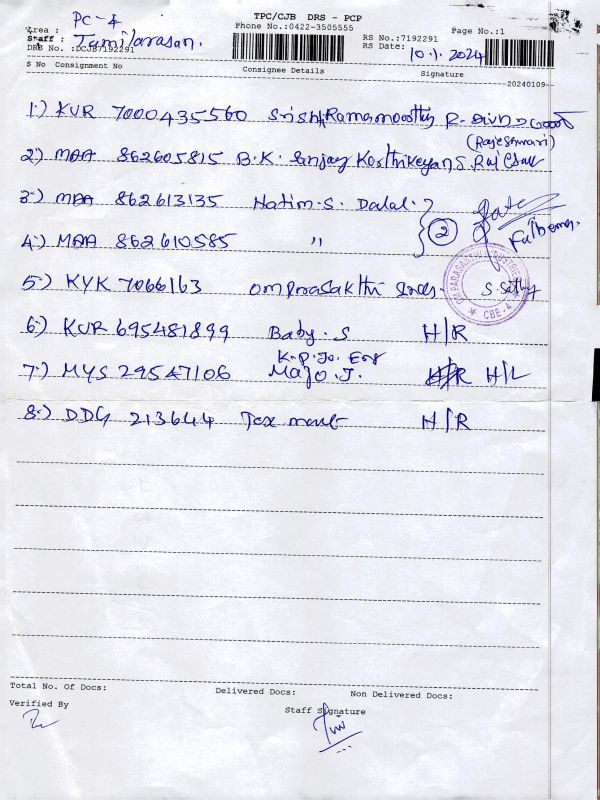 TPC/CJB DRS - PCP
PC-4
Phone No.:0422-3505555
Area :
Staff : Tamilarasan.
DRS No. :DCJB7192291
RS No.:7192291
RS Date: 10.1.2024
Page No.:1
S No Consignment No Consignee Details Signature
20240109
1.) KUR 7000435560 Srish Ramamoorthy R.
(Rajeshwari)
2.) MAA 862605815 B.K. Sanjay Karthikeyan S.
3.) MAA 862613135 Hatim.S. Dalal.
4.) MAA 862610585 " 2
Fathema.
5.) KYK 7066163 Omparasakthi S. Sethy
CBE-4
6.) KUR 695481899 Baby.S H/R
K.P.Jo. Eng
7.) MYS 29547106 Majo.J. H/L
8.) DDG 213644 Tex mart H/R
Total No. Of Docs: Delivered Docs: Non Delivered Docs:
Verified By Staff Signature